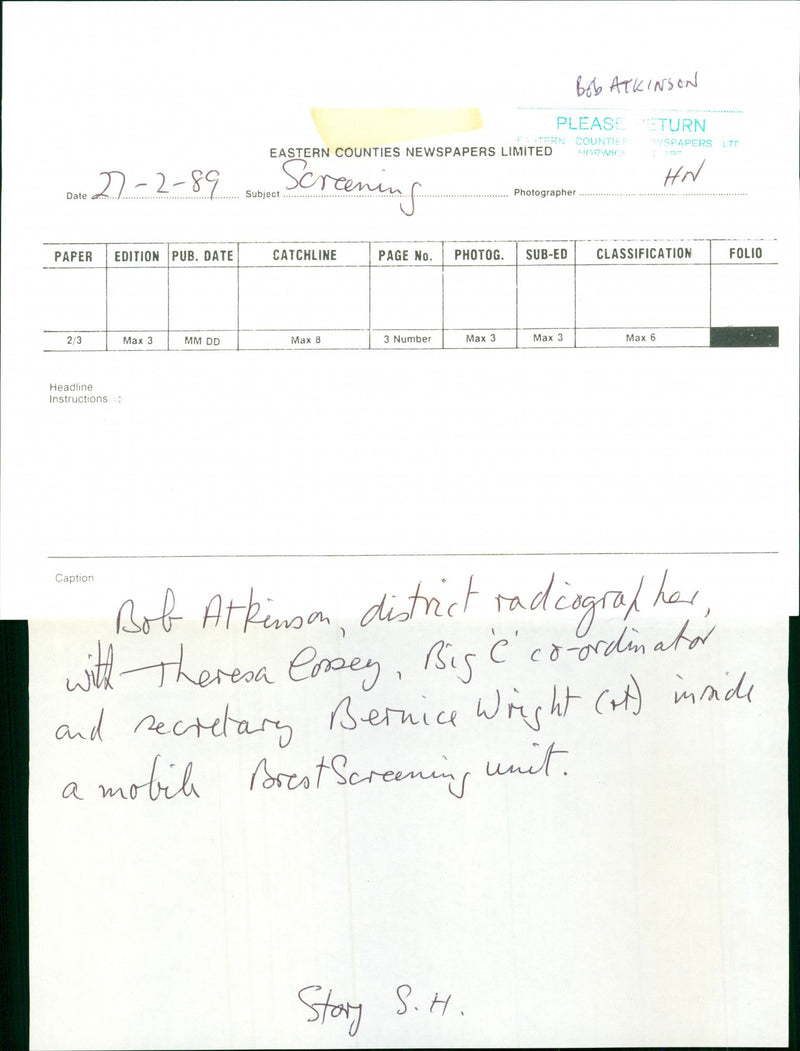 Bob ATKINSON
PLEASE RETURN
COUNTIES NEWSPAPERS LTD
NORWICH
EASTERN COUNTIES NEWSPAPERS LIMITED
Date 27-2-89 Subject Screening Photographer HN
PAPER EDITION PUB. DATE CATCHLINE PAGE No. PHOTOG. SUB-ED CLASSIFICATION FOLIO
2/3 Max 3 MM DD Max 8 3 Number Max 3 Max 3 Max 6
Headline
Instructions
Caption
Bob Atkinson, district radiographer,
with Theresa Cossey, Big 'C' co-ordinator
and secretary Bernice Wright (rt) inside
a mobile Brest Screening unit.
Story S.H.